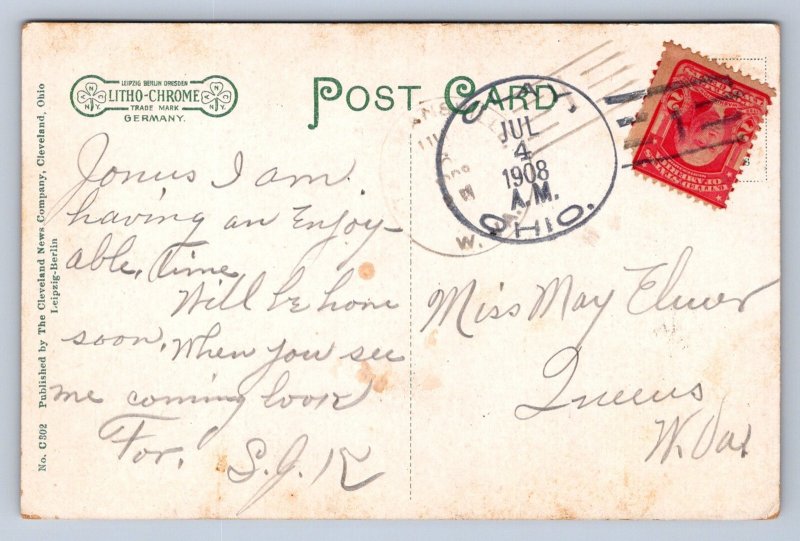 LEIPZIG BERLIN DRESDEN
LITHO-CHROME
TRADE MARK
GERMANY.
POST CARD
JUL
4
1908
A.M.
OHIO.
W.
No. C302 Published by The Cleveland News Company, Cleveland, Ohio
Leipzig-Berlin
I am
having an Enjoy-
able, time
Will be home
soon. When you see
me coming look
For. S.J.K
Miss May Elmer
Queens
W. Va